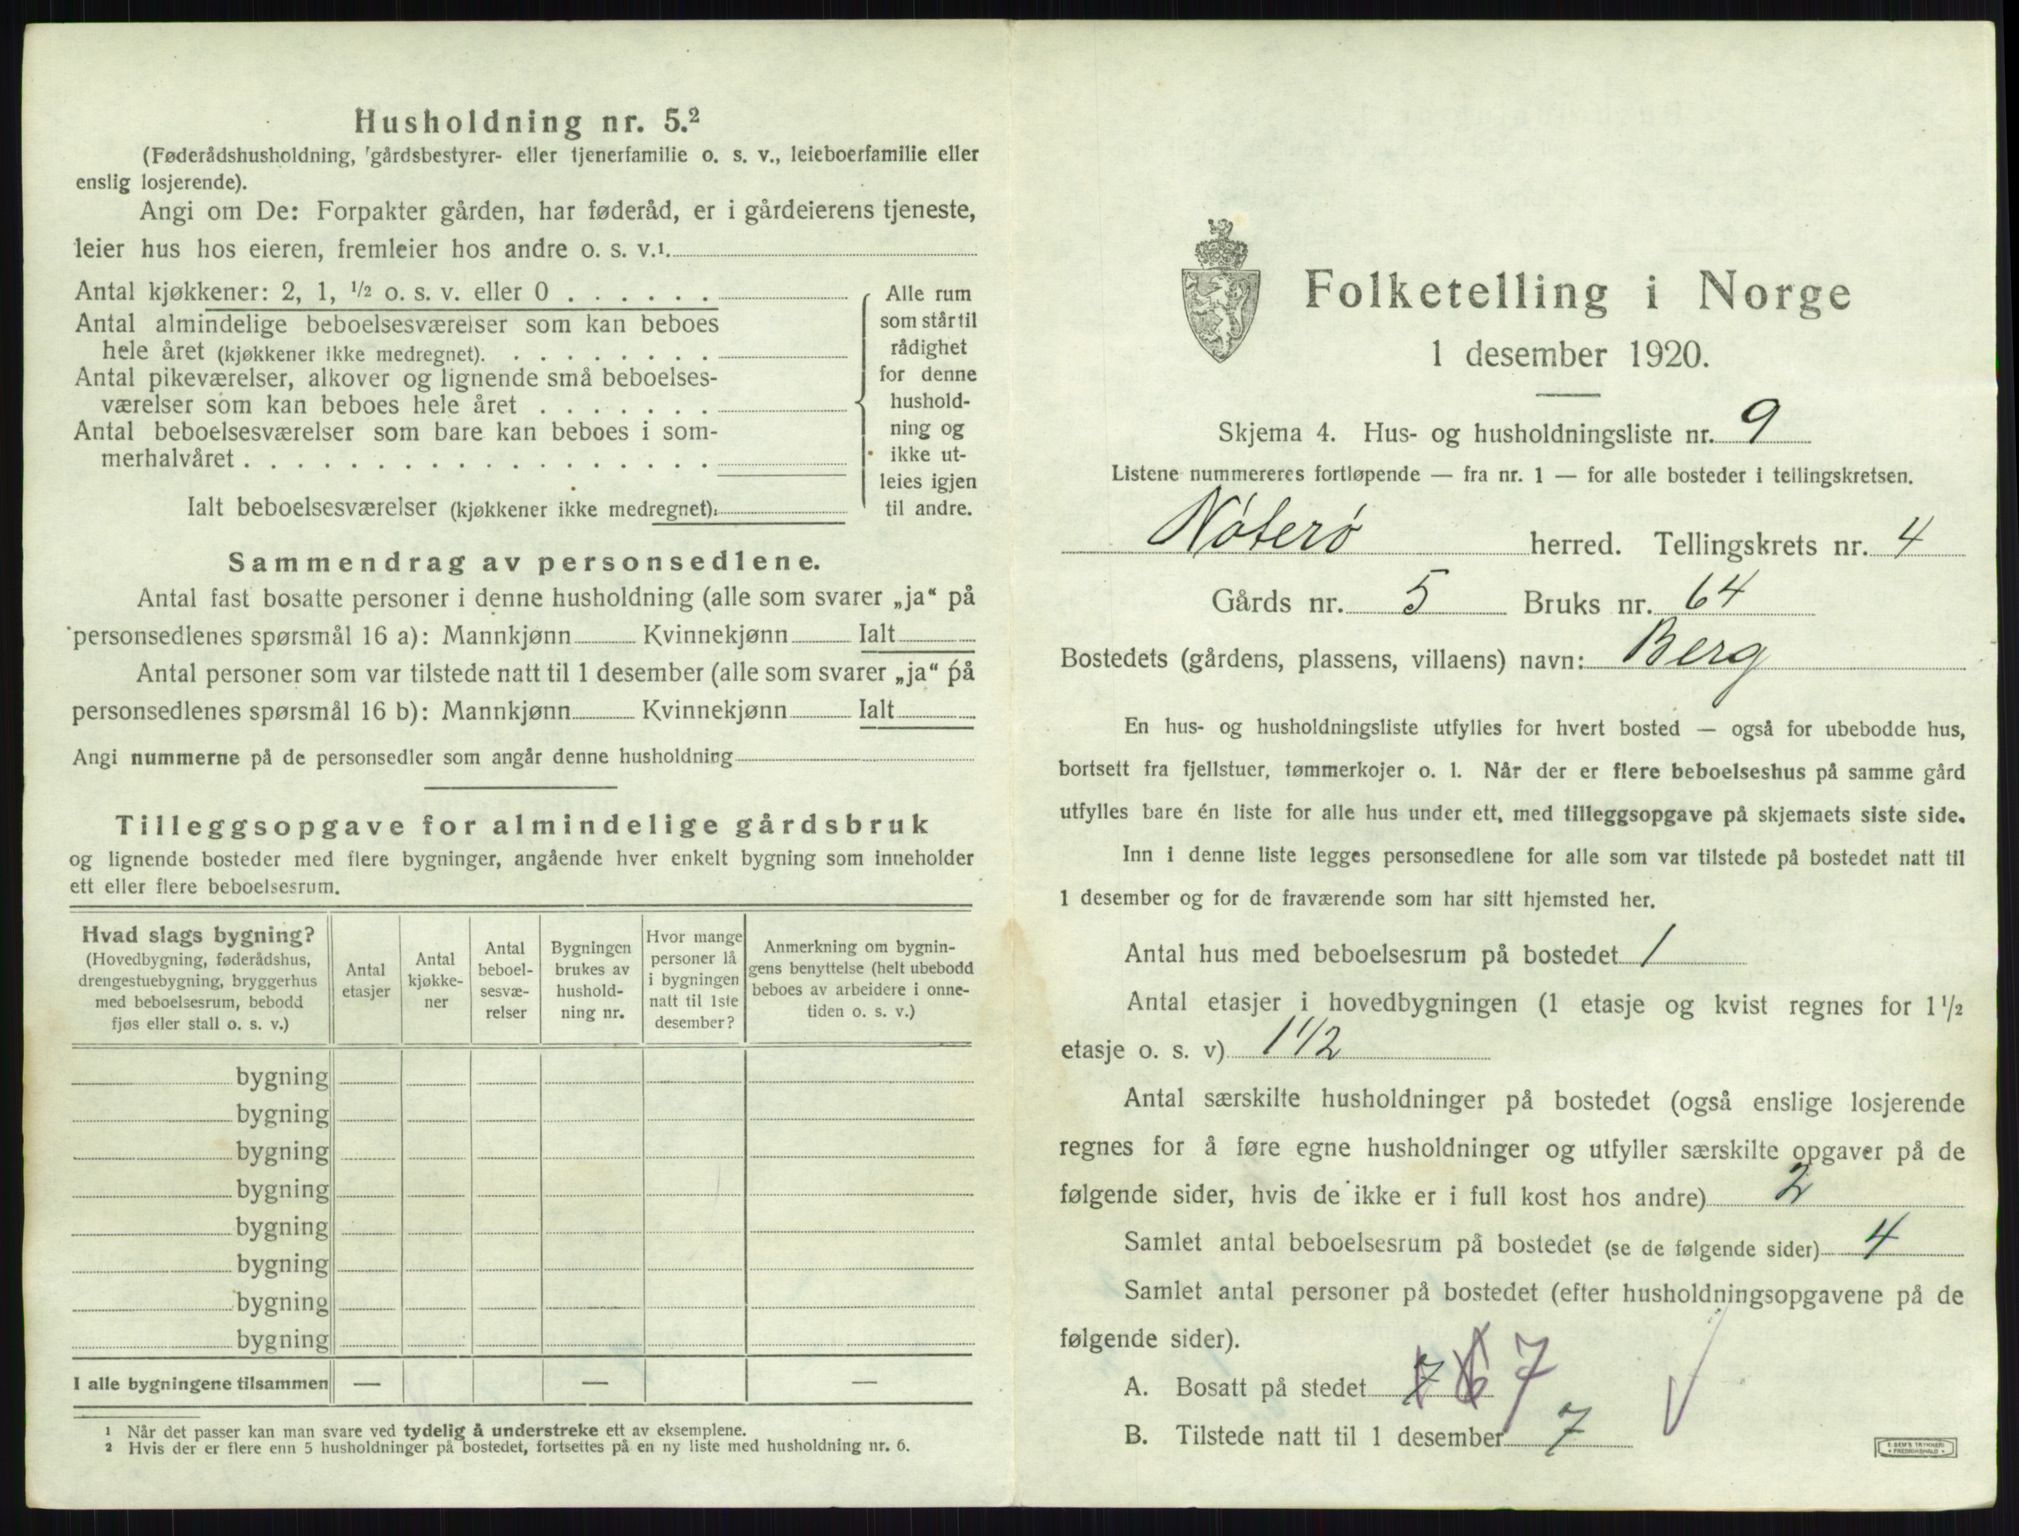 Husholdning nr. 5.²
(Føderådshusholdning, gårdsbestyrer- eller tjenerfamilie o. s. v., leieboerfamilie eller
enslig losjerende).
Angi om De: Forpakter gården, har føderåd, er i gårdeierens tjeneste,
leier hus hos eieren, fremleier hos andre o. s. v.¹.
Antal kjøkkener: 2, 1, ½ o. s. v. eller 0 . . . . . .
Antal almindelige beboelsesværelser som kan beboes
hele året (kjøkkener ikke medregnet). . . . . . . . .
Antal pikeværelser, alkover og lignende små beboelses-
værelser som kan beboes hele året . . . . . . .
Antal beboelsesværelser som bare kan beboes i som-
merhalvåret . . . . . . . . . . . . . . . . . .
Ialt beboelsesværelser (kjøkkener ikke medregnet):
Alle rum
som står til
rådighet
for denne
hushold-
ning og
ikke ut-
leies igjen
til andre.
Sammendrag av personsedlene.
Antal fast bosatte personer i denne husholdning (alle som svarer „ja“ på
personsedlenes spørsmål 16 a): Mannkjønn Kvinnekjønn Ialt
Antal personer som var tilstede natt til 1 desember (alle som svarer „ja“ på
personsedlenes spørsmål 16 b): Mannkjønn Kvinnekjønn Ialt
Angi nummerne på de personsedler som angår denne husholdning
Tilleggsopgave for almindelige gårdsbruk
og lignende bosteder med flere bygninger, angående hver enkelt bygning som inneholder
ett eller flere beboelsesrum.
Hvad slags bygning?
(Hovedbygning, føderådshus,
drengestuebygning, bryggerhus
med beboelsesrum, bebodd
fjøs eller stall o. s. v.)
Antal
etasjer
Antal
kjøkke-
ner
Antal
beboel-
sesvæ-
relser
Bygningen
brukes av
hushold-
ning nr.
Hvor mange
personer lå
i bygningen
natt til 1ste
desember?
Anmerkning om bygnin-
gens benyttelse (helt ubebodd
beboes av arbeidere i onne-
tiden o. s. v.)
bygning
bygning
bygning
bygning
bygning
bygning
bygning
bygning
I alle bygningene tilsammen — — —
¹ Når det passer kan man svare ved tydelig å understreke ett av eksemplene.
² Hvis der er flere enn 5 husholdninger på bostedet, fortsettes på en ny liste med husholdning nr. 6.
Folketelling i Norge
1 desember 1920.
Skjema 4. Hus- og husholdningsliste nr. 9
Listene nummereres fortløpende — fra nr. 1 — for alle bosteder i tellingskretsen.
Nøterø herred. Tellingskrets nr. 4
Gårds nr. 5 Bruks nr. 64
Bostedets (gårdens, plassens, villaens) navn: Berg
En hus- og husholdningsliste utfylles for hvert bosted — også for ubebodde hus,
bortsett fra fjellstuer, tømmerkojer o. l. Når der er flere beboelseshus på samme gård
utfylles bare én liste for alle hus under ett, med tilleggsopgave på skjemaets siste side.
Inn i denne liste legges personsedlene for alle som var tilstede på bostedet natt til
1 desember og for de fraværende som har sitt hjemsted her.
Antal hus med beboelsesrum på bostedet 1
Antal etasjer i hovedbygningen (1 etasje og kvist regnes for 1 ½
etasje o. s. v) 1 1/2
Antal særskilte husholdninger på bostedet (også enslige losjerende
regnes for å føre egne husholdninger og utfyller særskilte opgaver på de
følgende sider, hvis de ikke er i full kost hos andre) 2
Samlet antal beboelsesrum på bostedet (se de følgende sider) 4
Samlet antal personer på bostedet (efter husholdningsopgavene på de
følgende sider).
A. Bosatt på stedet 7 6 7
B. Tilstede natt til 1 desember 7
E. SEM'S TRYKKERI
FREDRIKSHALD